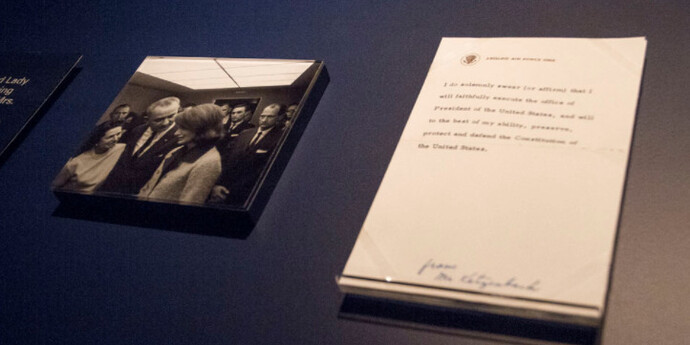 d Lady
ing
Mrs.
ABOARD AIR FORCE ONE
I do solemnly swear (or affirm) that I
will faithfully execute the office of
President of the United States, and will
to the best of my ability, preserve,
protect and defend the Constitution of
the United States.
from
Mr Katzenbach